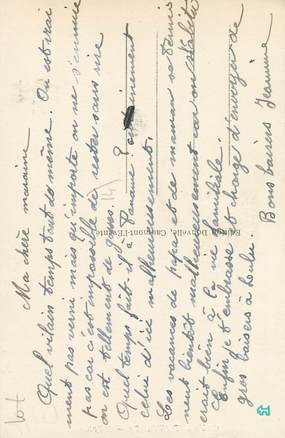 Ma chère marraine
Quel vilain temps tout de même. On est vrai
ment pas verni mais qu'importe on ne s'ennuie
pas car c'est impossible de rester sans rire
on est tellement de gens.
Quel temps fait-il à ? certainement
celui d'ici malheureusement.
Les vacances de papa et de maman se termi
nent bientôt malheureusement car on s'habitu
erait bien à la vie
Enfin je t'embrasse et charge d'envoyer de
gros baisers à Loulou.
Bons baisers Jeannine
Lot